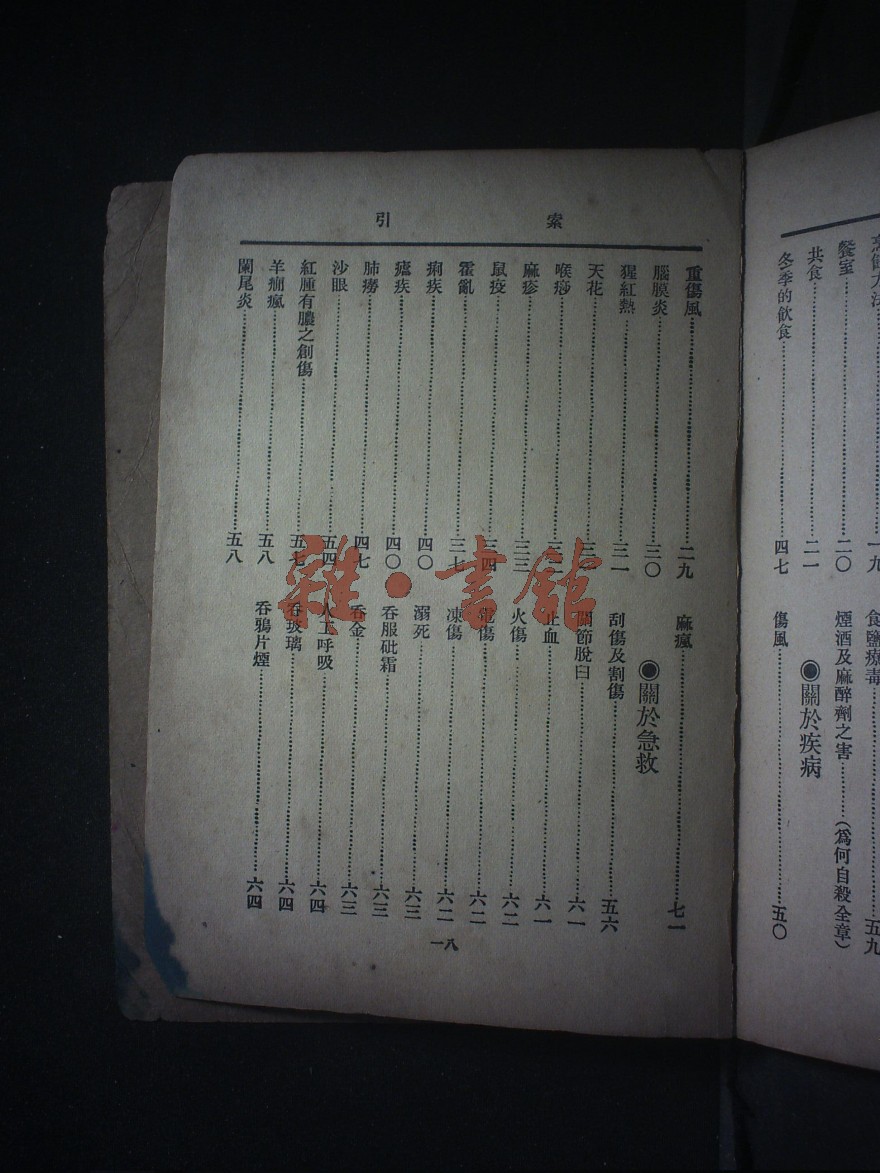 餐室……二〇
共食……二一
冬季的飲食……四七
食鹽療毒……五九
煙酒及麻醉劑之害……(爲何自殺全章)
◉關於疾病
傷風……五〇
索引
重傷風……二九
腦膜炎……三〇
猩紅熱……三一
天花……
喉痧……
麻疹……三三
鼠疫……三四
霍亂……三七
痢疾……四〇
瘧疾……四〇
肺癆……四七
沙眼……五四
紅腫有膿之創傷……五七
羊癇瘋……五八
闌尾炎……五八
麻瘋……七一
◉關於急救
刮傷及割傷……五六
關節脫臼……六一
止血……六一
火傷……六二
電傷……六二
凍傷……六二
溺死……六三
吞服砒霜……六三
吞金……六三
人工呼吸……六四
吞玻璃……六四
吞鴉片煙……六四
一八
雜·書館